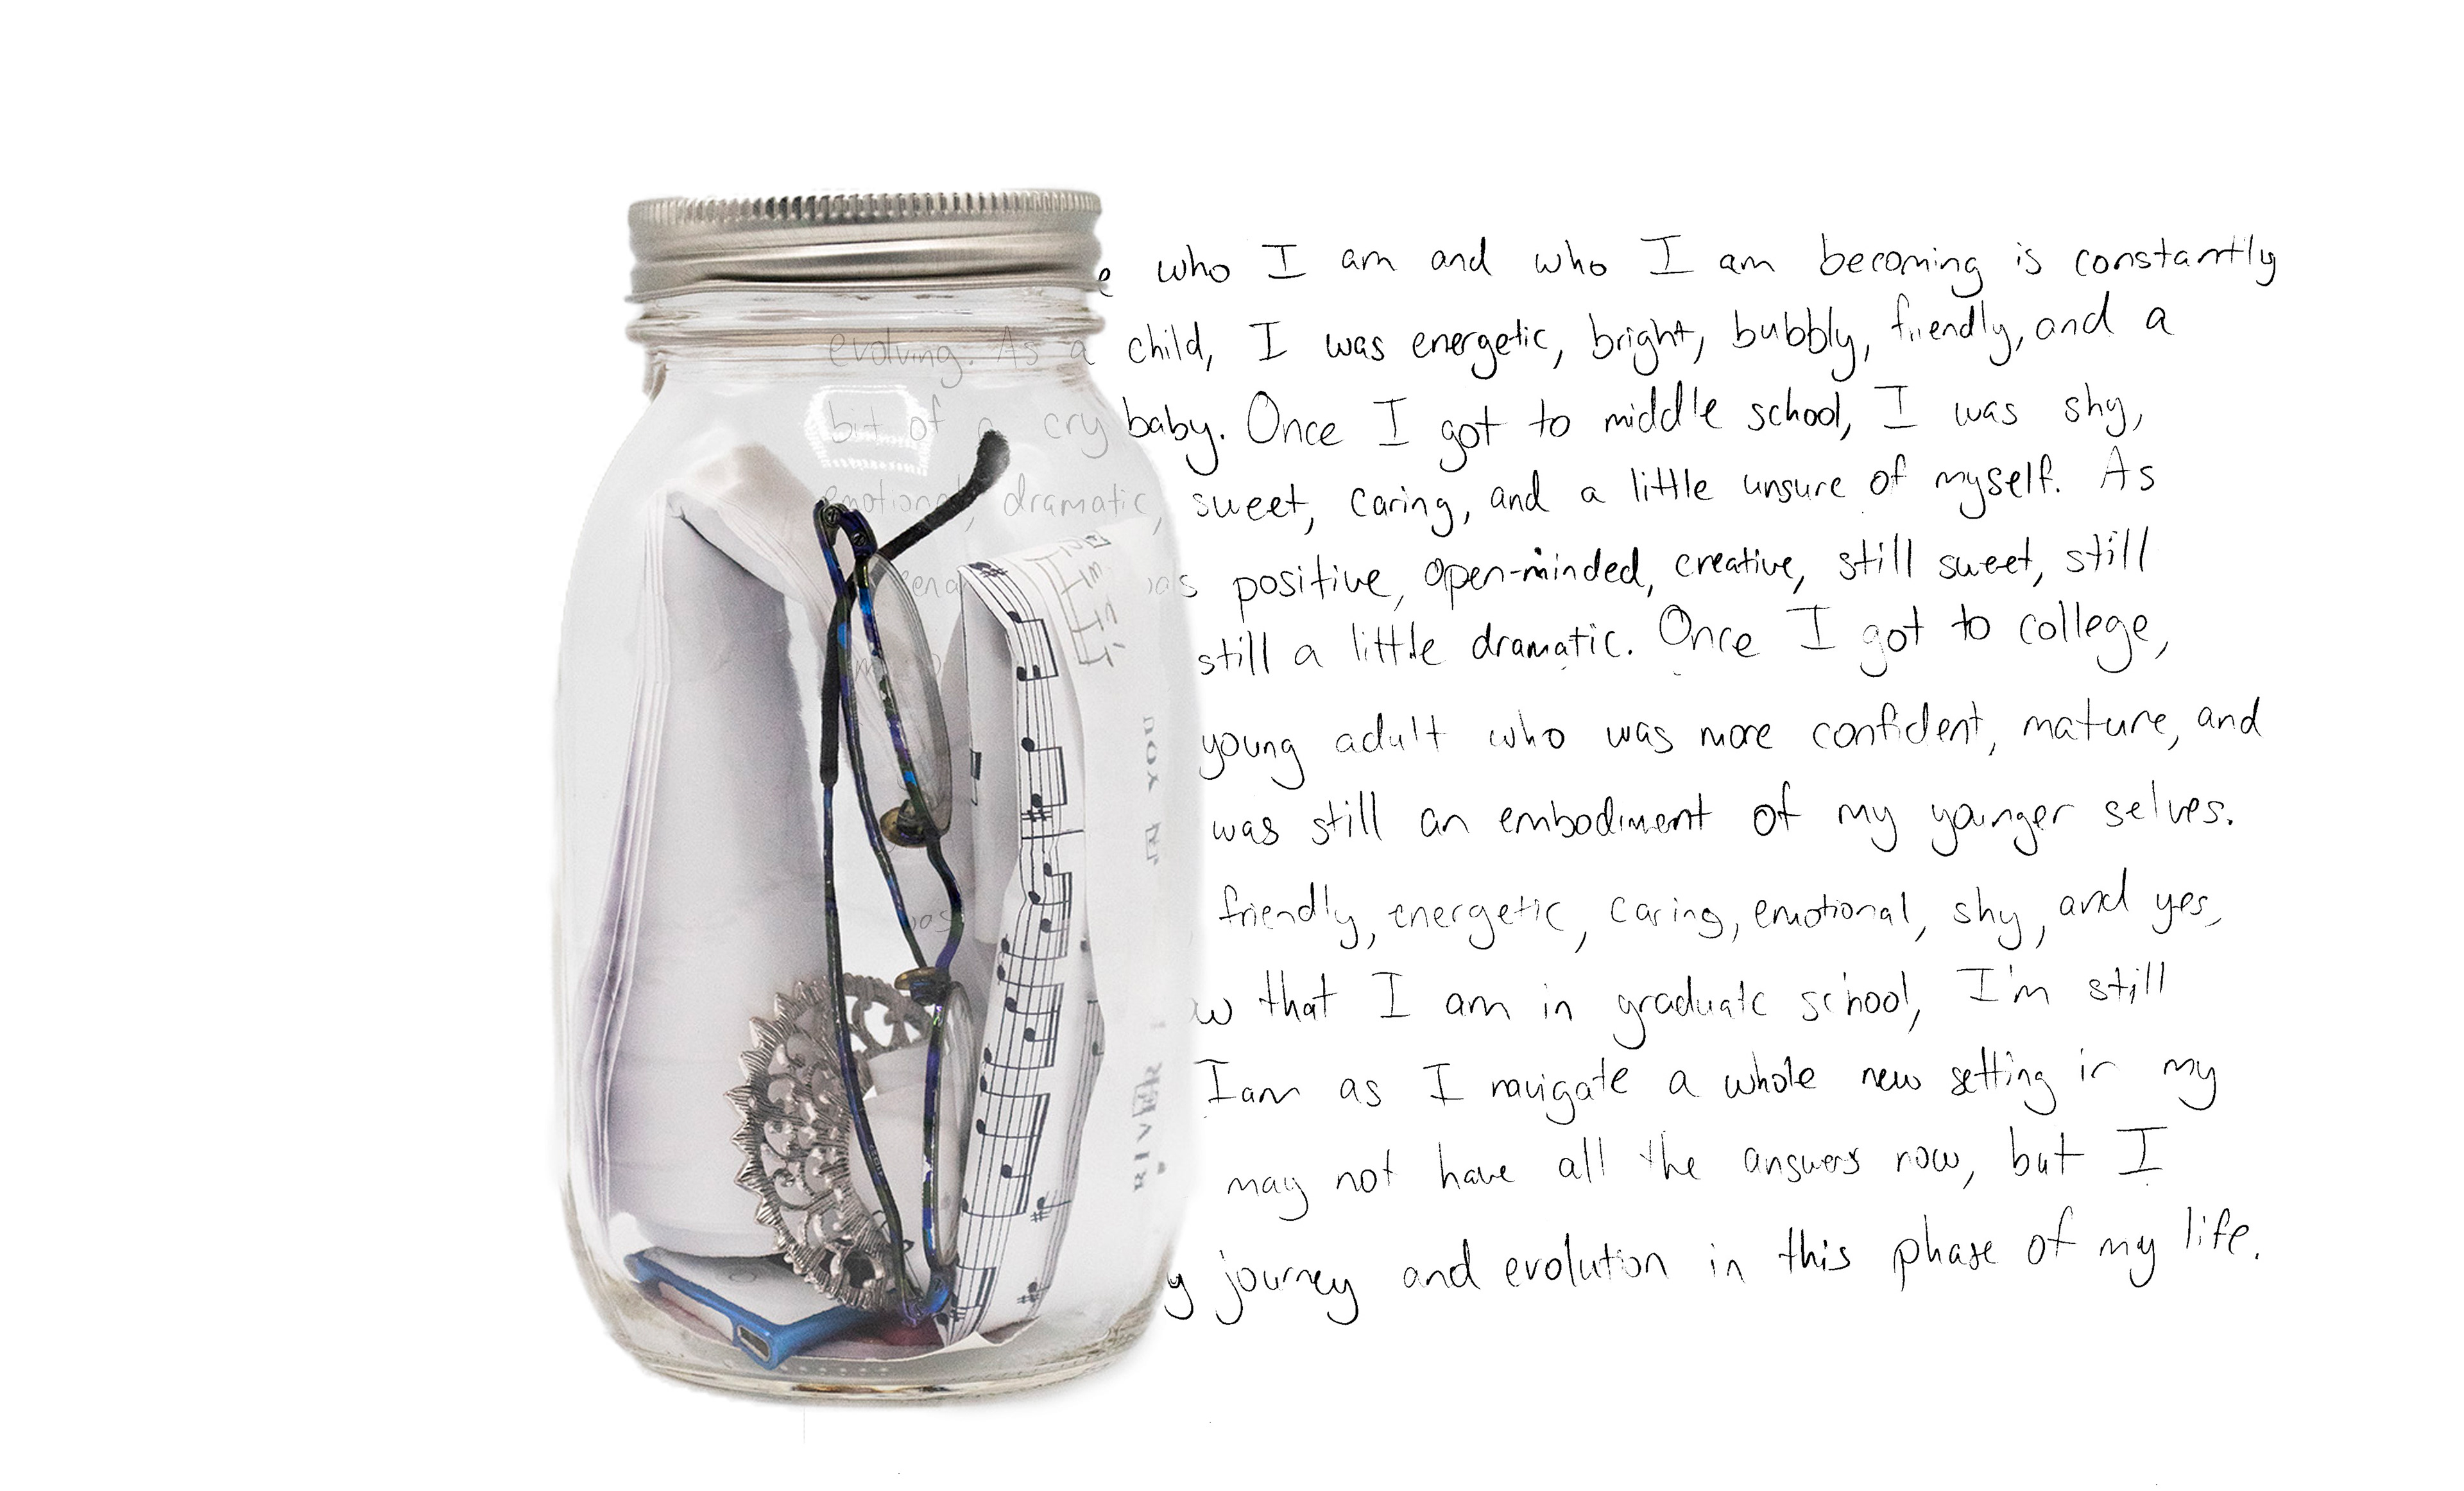 who I am and who I am becoming is constantly
evolving. As a child, I was energetic, bright, bubbly, friendly, and a
bit of a cry baby. Once I got to middle school, I was shy,
emotional, dramatic, sweet, caring, and a little unsure of myself. As
positive, open-minded, creative, still sweet, still
still a little dramatic. Once I got to college,
young adult who was more confident, mature, and
was still an embodiment of my younger selves.
friendly, energetic, caring, emotional, shy, and yes,
that I am in graduate school, I'm still
I am as I navigate a whole new setting in my
may not have all the answers now, but I
journey and evolution in this phase of my life.
YOU
RIVER